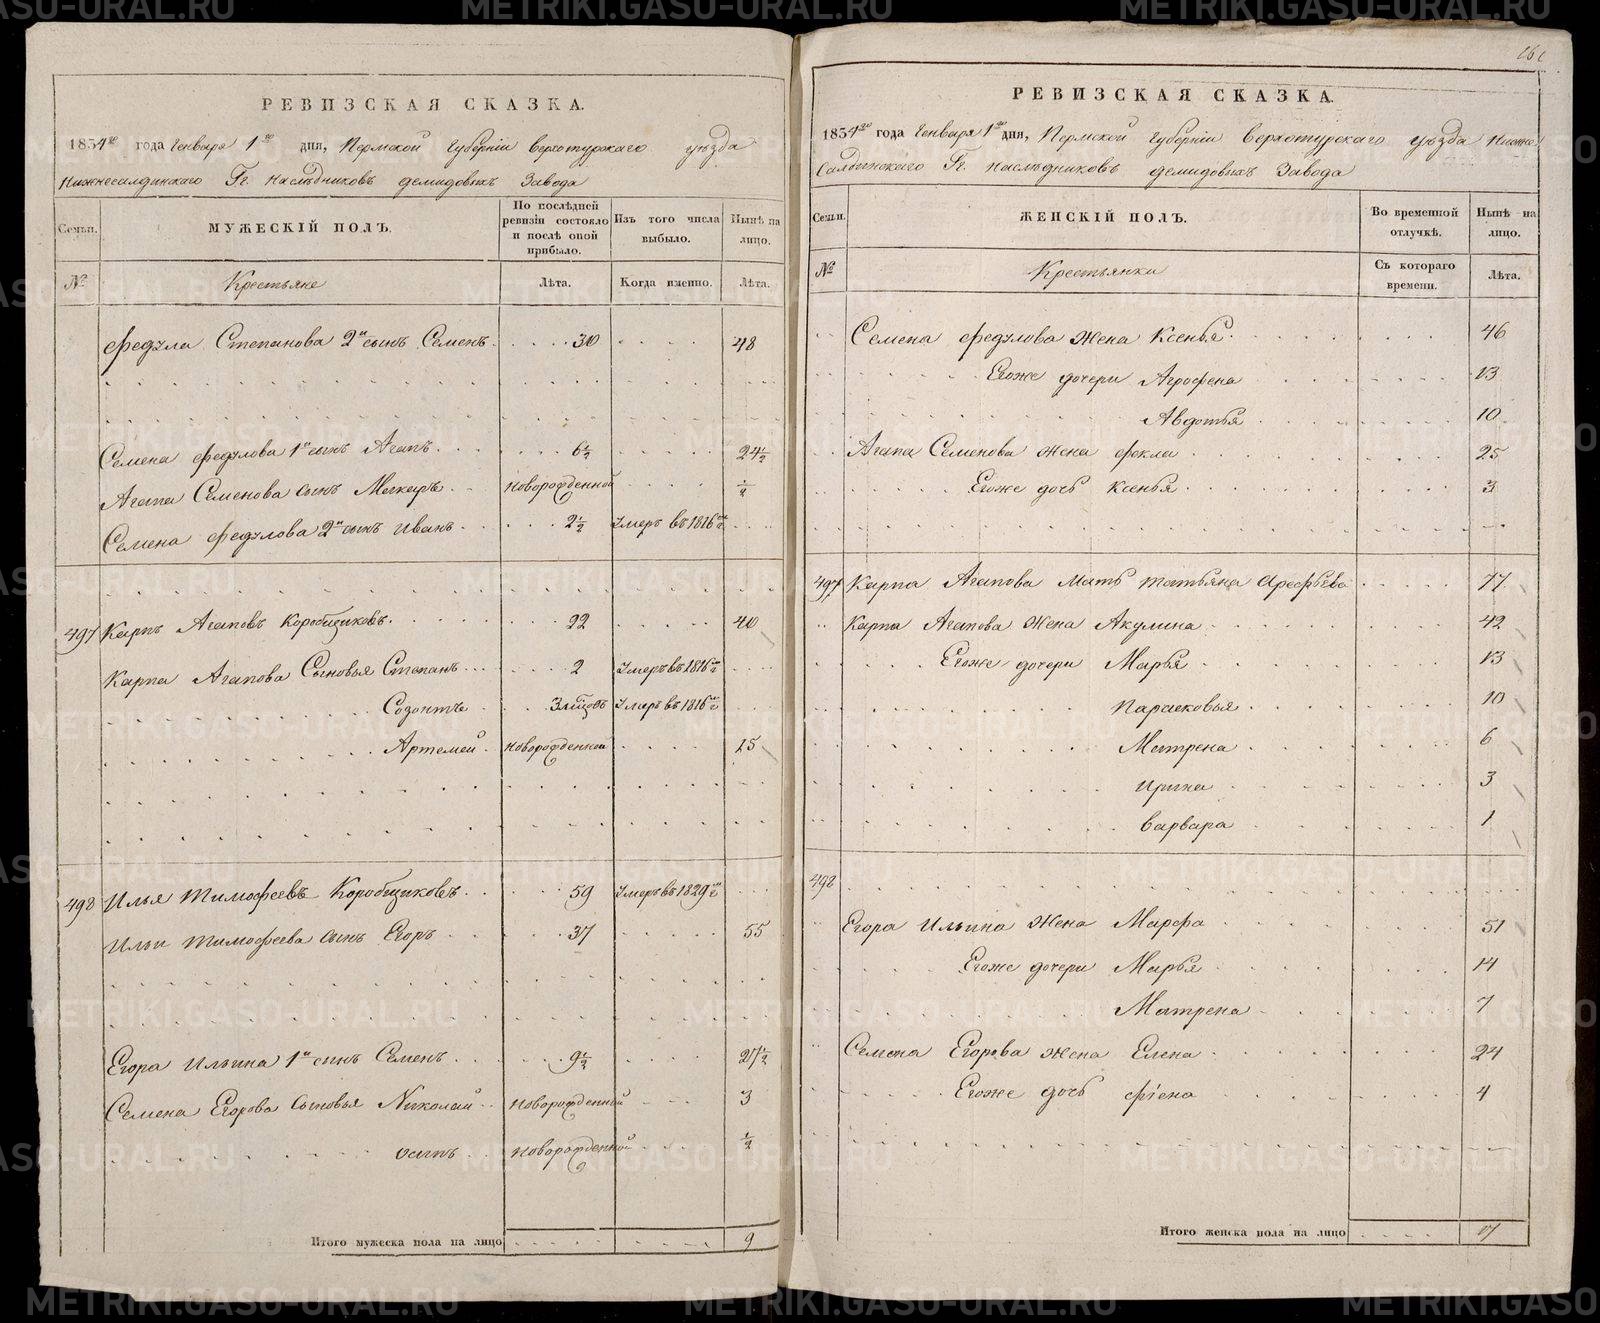 РЕВИЗСКАЯ СКАЗКА.
1834го года Генваря 1го дня, Пермской Губерніи Верхотурскаго уѣзда
Нижнесалдинскаго Гг. Наслѣдниковъ Демидовыхъ Завода
Семьи.
МУЖЕСКІЙ ПОЛЪ.
По послѣдней ревизіи состояло и послѣ оной прибыло.
Изъ того числа выбыло.
Нынѣ на лицо.
№
Крестьяне
Лѣта.
Когда именно.
Лѣта.
Федула Степанова 2й сынъ Семенъ 30 48
Семена Федулова 1й сынъ Агапъ 6½ 24½
Агапа Семенова сынъ Макаръ новорожденной ½
Семена Федулова 2й сынъ Иванъ 2½ Умеръ въ 1816мъ г
497 Карпъ Агаповъ Коробщиковъ 22 40
Карпа Агапова Сыновья Степанъ 2 Умеръ въ 1816мъ г
Созонтъ 3 мѣсяцовъ Умеръ въ 1816мъ г
Артемей новорожденной 15
498 Илья Тимофеевъ Коробщиковъ 59 Умеръ въ 1829мъ г
Ильи Тимофеева сынъ Егоръ 37 55
Егора Ильина 1й сынъ Семенъ 9½ 27½
Семена Егорова сыновья Николай новорожденной 3
Осипъ новорожденной ½
Итого мужеска пола на лицо 9
РЕВИЗСКАЯ СКАЗКА.
1834го года Генваря 1го дня, Пермской Губерніи Верхотурскаго уѣзда Нижне
Салдинскаго Гг. Наслѣдниковъ Демидовыхъ Завода
Семьи.
ЖЕНСКІЙ ПОЛЪ.
Во временной отлучкѣ.
Нынѣ на лицо.
№
Крестьянки
Съ котораго времени.
Лѣта.
Семена Федулова жена Ксенья 46
Егоже дочери Агрофена 13
Авдотья 10
Агапа Семенова жена Фекла 25
Егоже дочь Ксенья 3
497 Карпа Агапова мать Татьяна Арефьева 77
Карпа Агапова жена Акулина 42
Егоже дочери Марья 13
Парасковья 10
Матрена 6
Ирина 3
Варвара 1
498
Егора Ильина жена Марфа 51
Егоже дочери Марья 14
Матрена 7
Семена Егорова жена Елена 24
Егоже дочь Фіена 4
Итого женска пола на лицо 17
METRIKI.GASO-URAL.RU